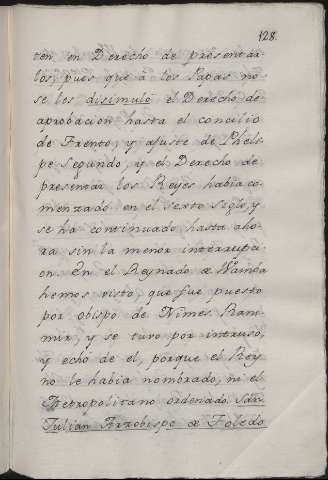 128.
ten en Derecho de presentar-
los, pues que à los Papas no
se les disimuló el Derecho de
aprobacion hasta el concilio
de Trento, y ajuste de Pheli-
pe Segundo, y el Derecho de
presentar los Reyes habia co-
menzado en el sexto Siglo, y
se ha continuado hasta aho-
ra sin la menor interrupci-
on. En el Reynado de Wamba
hemos visto, que fue puesto
por obispo de Nimes Ram-
mir, y se tuvo por intruso,
y echó de el, porque el Rey
no le habia nombrado, ni el
Metropolitano ordenado, San
Julian Arzobispo de Toledo